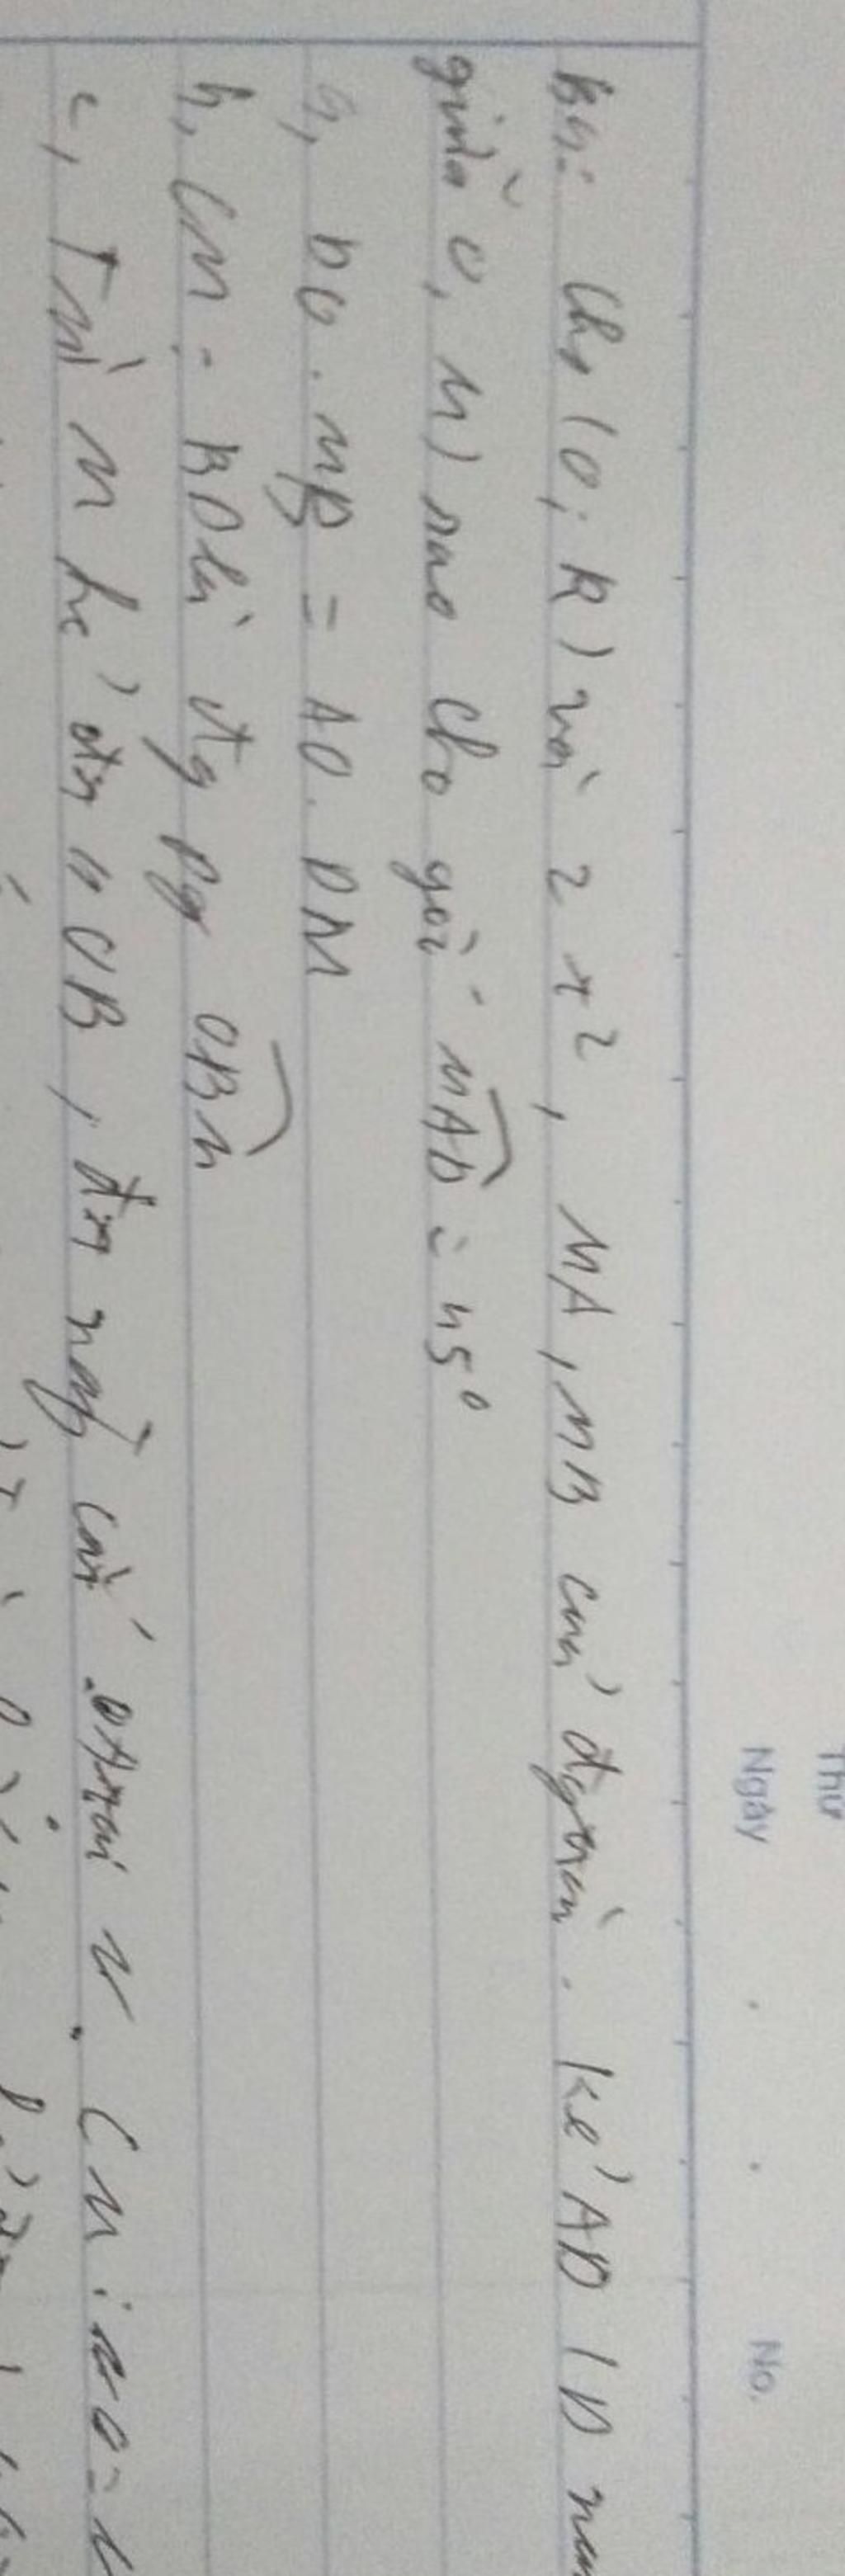 Thứ
Ngày No.
Bài: Cho (O; R) với 2 t², MA, MB của đgtròn. Kẻ AD (D nằm
giữa O, M) sao cho góc MAD = 45°
a, DO. MB = AO. DM
b, CM: BD là đtg pg OBM
c, Từ M kẻ đtg // OB, đtg này cắt OA tại N. CM: NO =